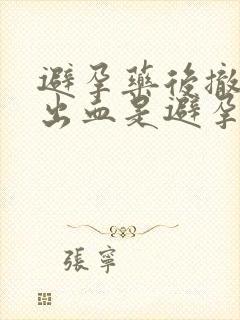 避孕藥後撤
出血是避孕
張寧